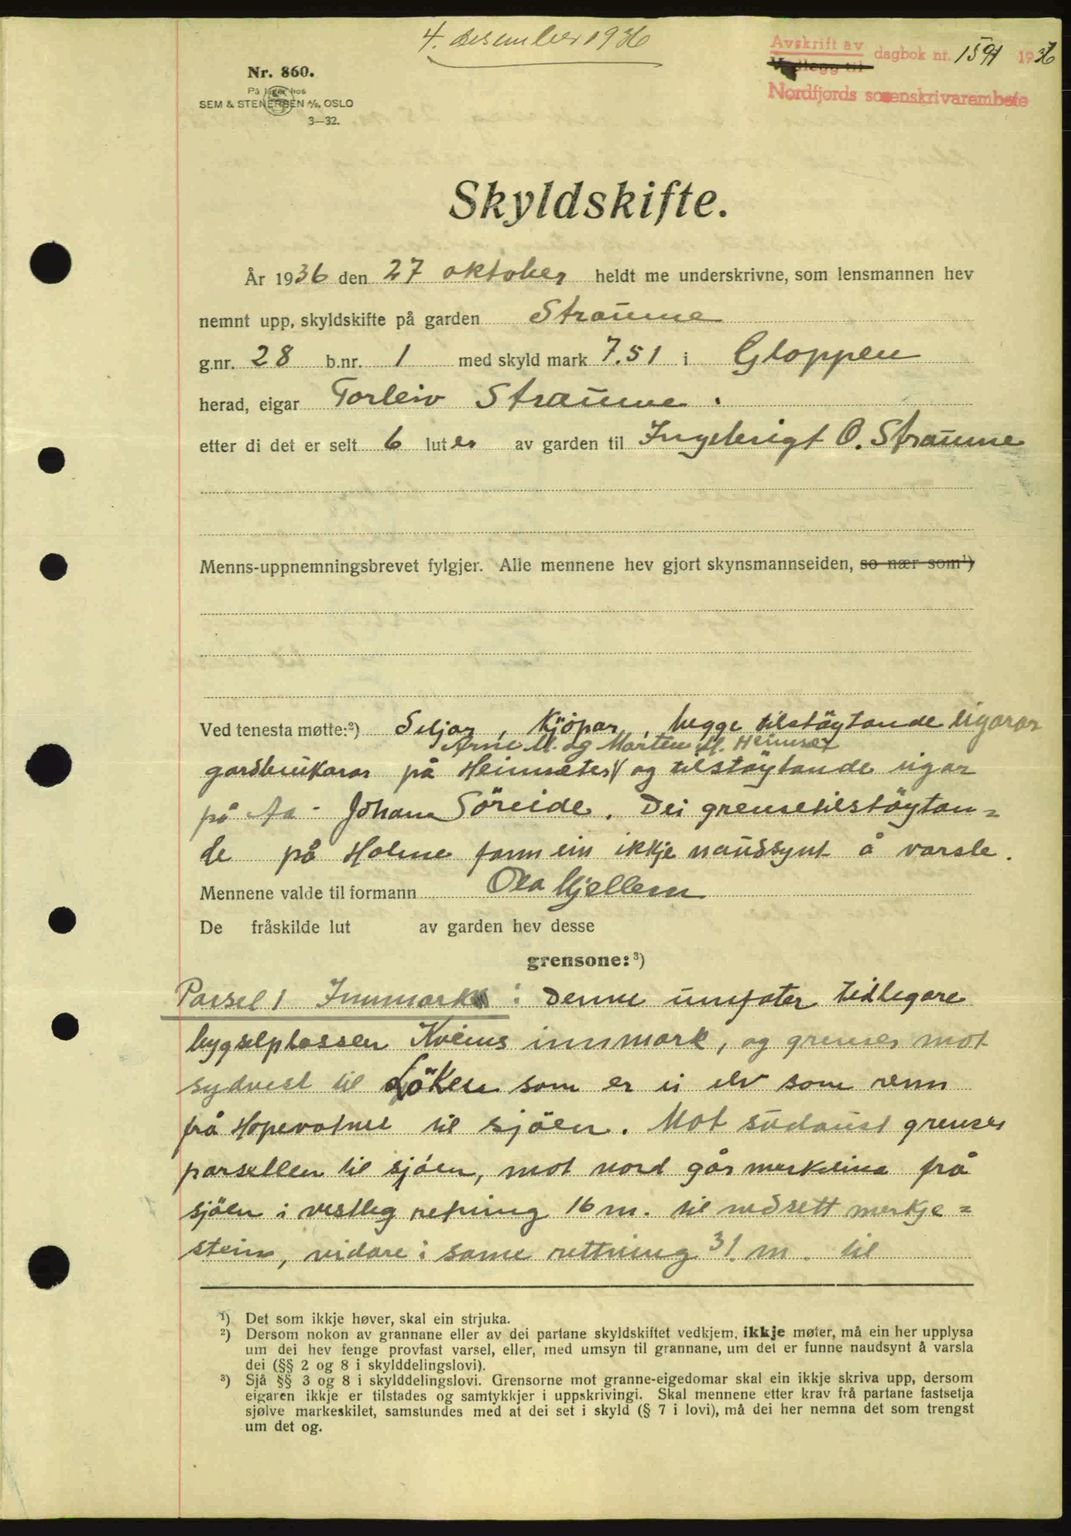 4. desember 1936
Avskrift av
Vedlegg til dagbok nr. 1591 1936
Nordfjords sorenskrivarembete
Nr. 860.
På lager hos
SEM & STENERSEN A/S, OSLO
3–32.
Skyldskifte.
År 1936 den 27 oktober heldt me underskrivne, som lensmannen hev
nemnt upp, skyldskifte på garden Straume
g.nr. 28 b.nr. 1 med skyld mark 7.51 i Gloppen
herad, eigar Torleiv Straume.
etter di det er selt 6 luter av garden til Ingebrigt O. Straume
Menns-uppnemningsbrevet fylgjer. Alle mennene hev gjort skynsmannseiden, so nær som¹)
Ved tenesta møtte:²) Seljar, Kjöpar, begge tilstöytande eigarar
Arne M. og Marten M. Heimset
gardbrukarar på Heimseter og tilstöytande eigar
på Aa - Johan Söreide. Dei grensetilstöytan=
de på Holme fann ein ikkje naudsynt å varsle.
Mennene valde til formann Ola Mjellem
De fråskilde lut av garden hev desse
grensone:³)
Parsel 1 Innmark: Denne umfater tidlegare
bygselplassen Kveins innmark, og grenser mot
sydvest til Löken som er ei elv som renn
frå Hopevatnet til sjöen. Mot sudaust grenser
parsellen til sjöen, mot nord går merkelina frå
sjöen i vestleg retning 16 m. til nedsett merkje=
stein, vidare i same rettning 31 m. til
¹) Det som ikkje høver, skal ein strjuka.
²) Dersom nokon av grannane eller av dei partane skyldskiftet vedkjem, ikkje møter, må ein her upplysa
um dei hev fenge provfast varsel, eller, med umsyn til grannane, um det er funne naudsynt å varsla
dei (§§ 2 og 8 i skylddelingslovi).
³) Sjå §§ 3 og 8 i skylddelingslovi. Grensorne mot granne-eigedomar skal ein ikkje skriva upp, dersom
eigaren ikkje er tilstades og samtykkjer i uppskrivingi. Skal mennene etter krav frå partane fastsetja
sjølve markeskilet, samstundes med at dei set i skyld (§ 7 i lovi), må dei her nemna det som trengst
um det og.